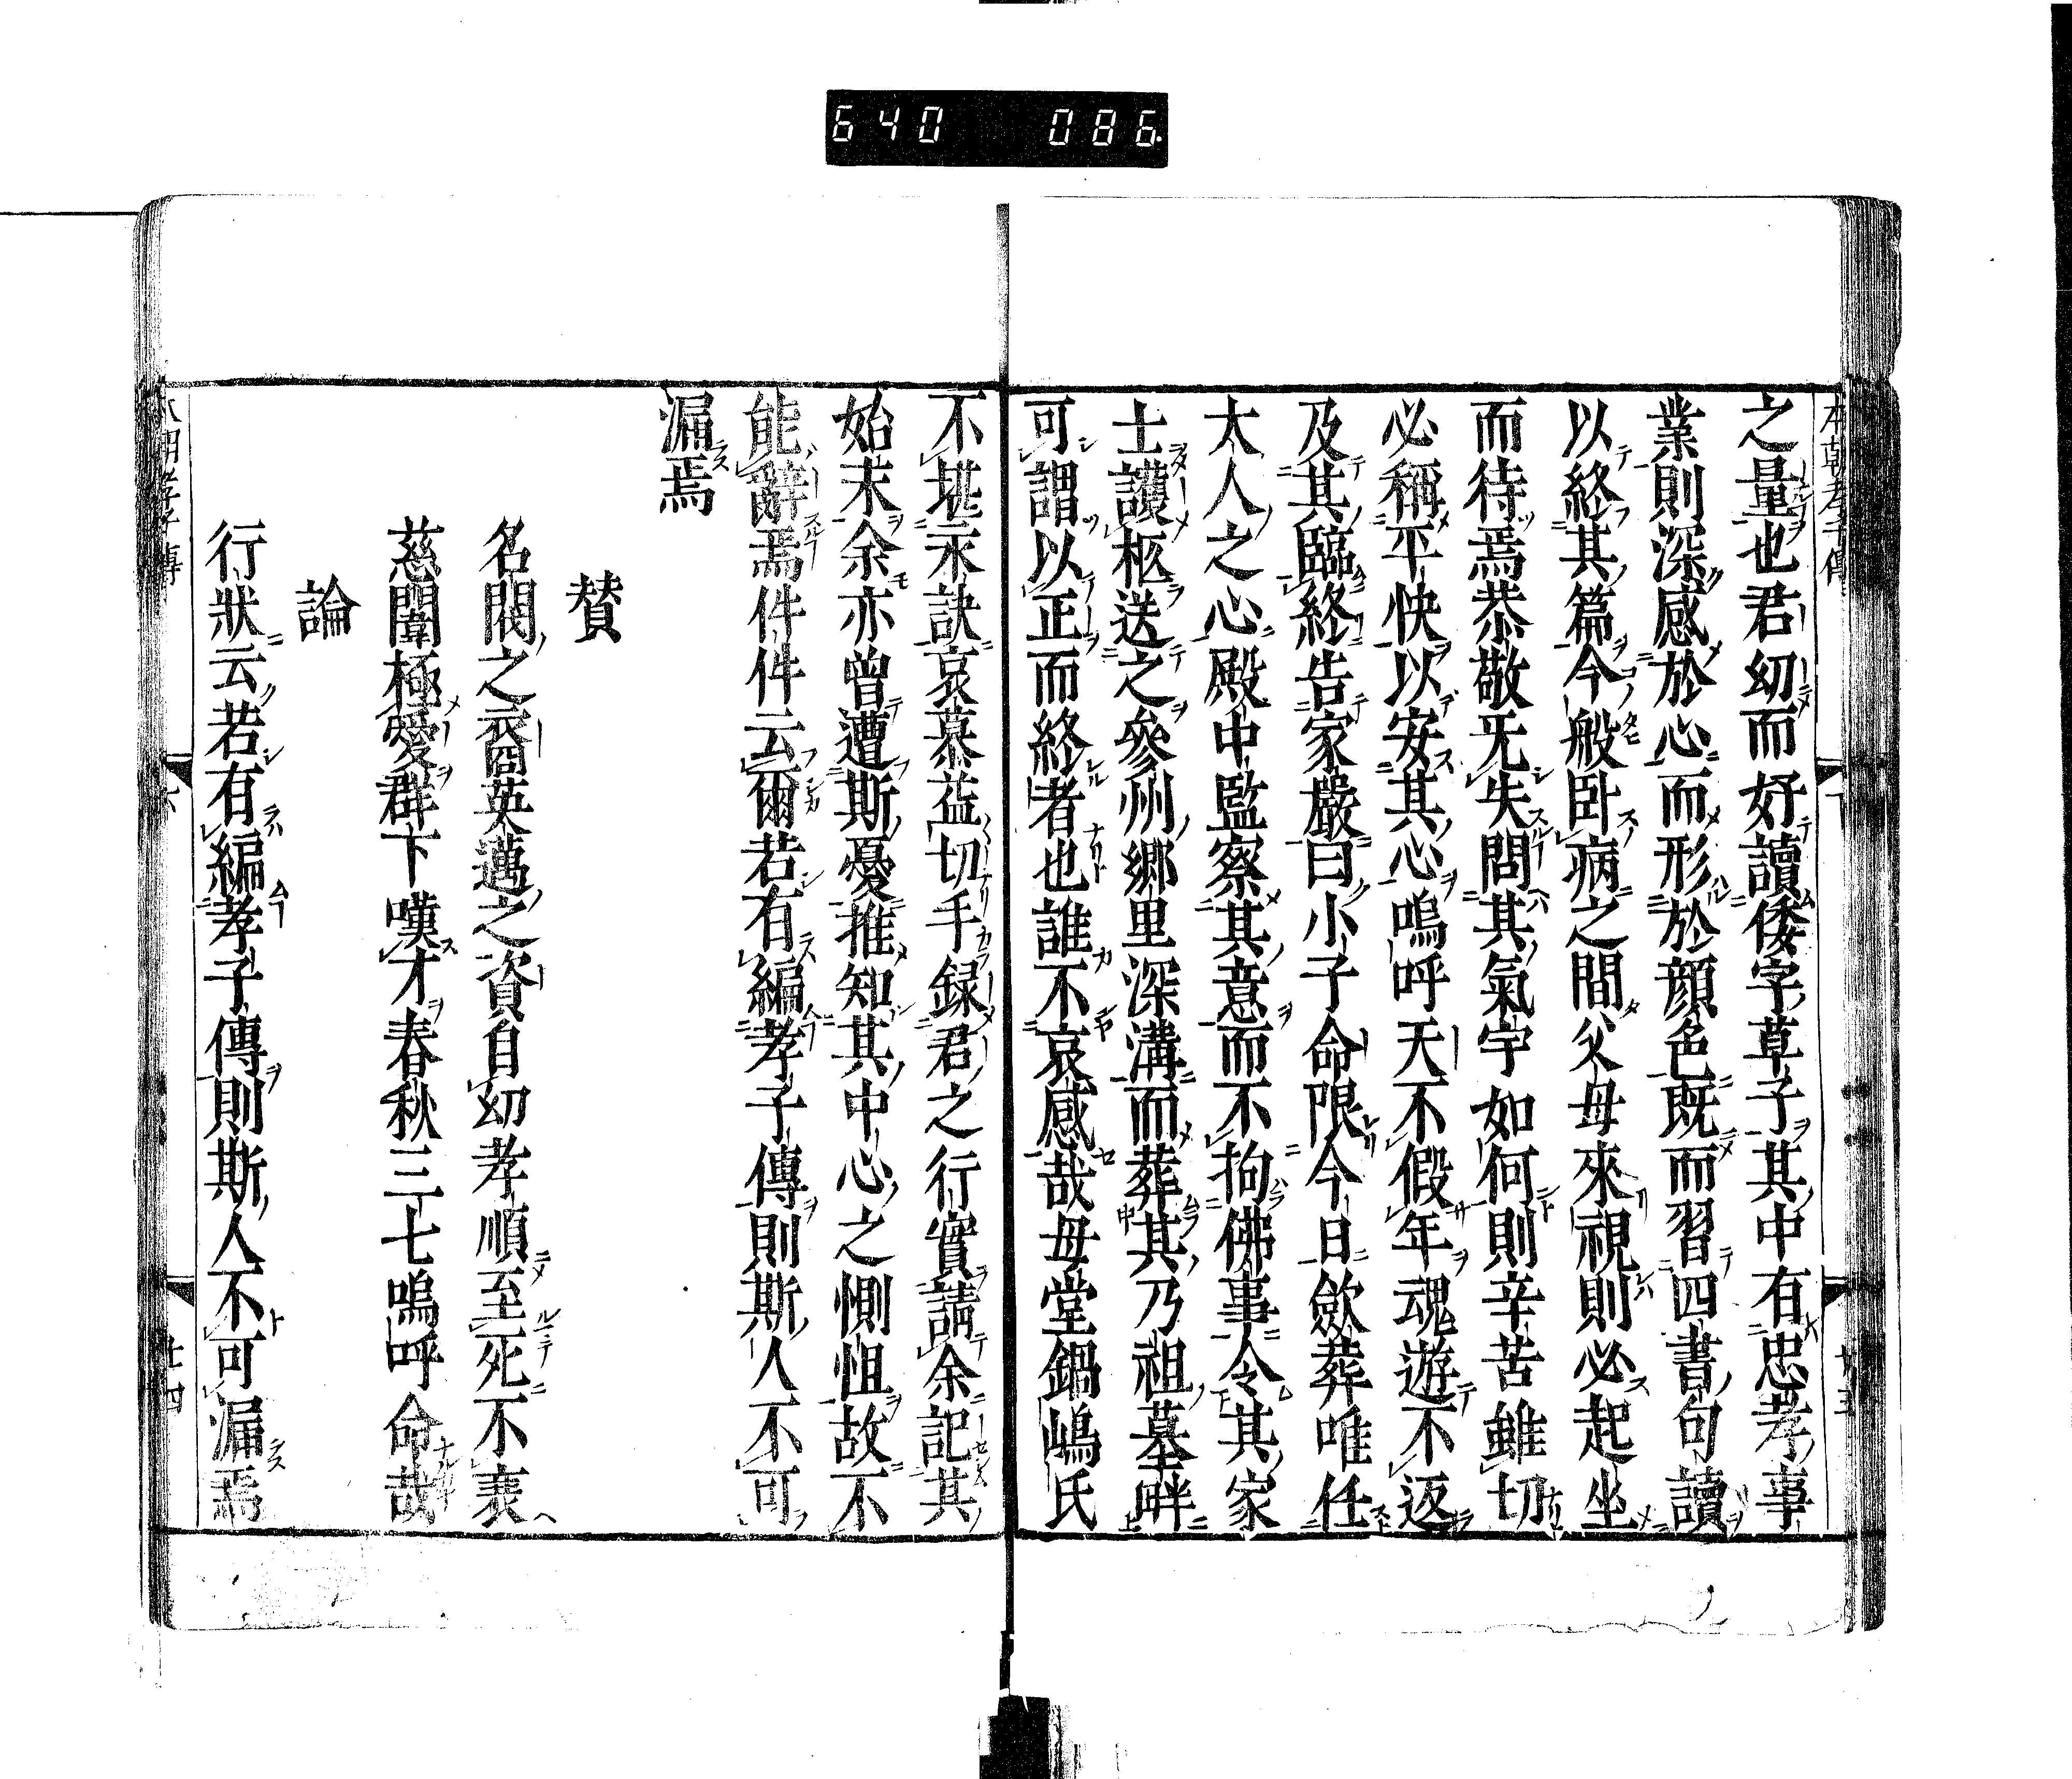 640 086
之量也君幼而好讀倭字草子其中有忠孝事
業則深感於心而形於顔色既而習四書句讀
以終其篇今般臥病之間父母來視則必起坐
而待焉恭敬旡失問其氣宇如何則辛苦雖切
必稱平快以安其心嗚呼天不假年魂遊不返
及其臨終告家嚴曰小子命限今日斂葬唯任
大人之心殿中監察其意而不拘佛事令其家
士護柩送之參州郷里深溝而葬其乃祖墓畔
可謂以正而終者也誰不哀感哉母堂鍋嶋氏
不堪永訣哀慕益切手録君之行實請余記其
始末余亦曾遭斯憂推知其中心之惻怛故不
能辭焉件件云爾若有編孝子傳則斯人不可
漏焉
賛
名閥之裔英邁之資自幼孝順至死不衰
慈闈極愛群下嘆才春秋三七嗚呼命哉
論
行狀云若有編孝子傳則斯人不可漏焉